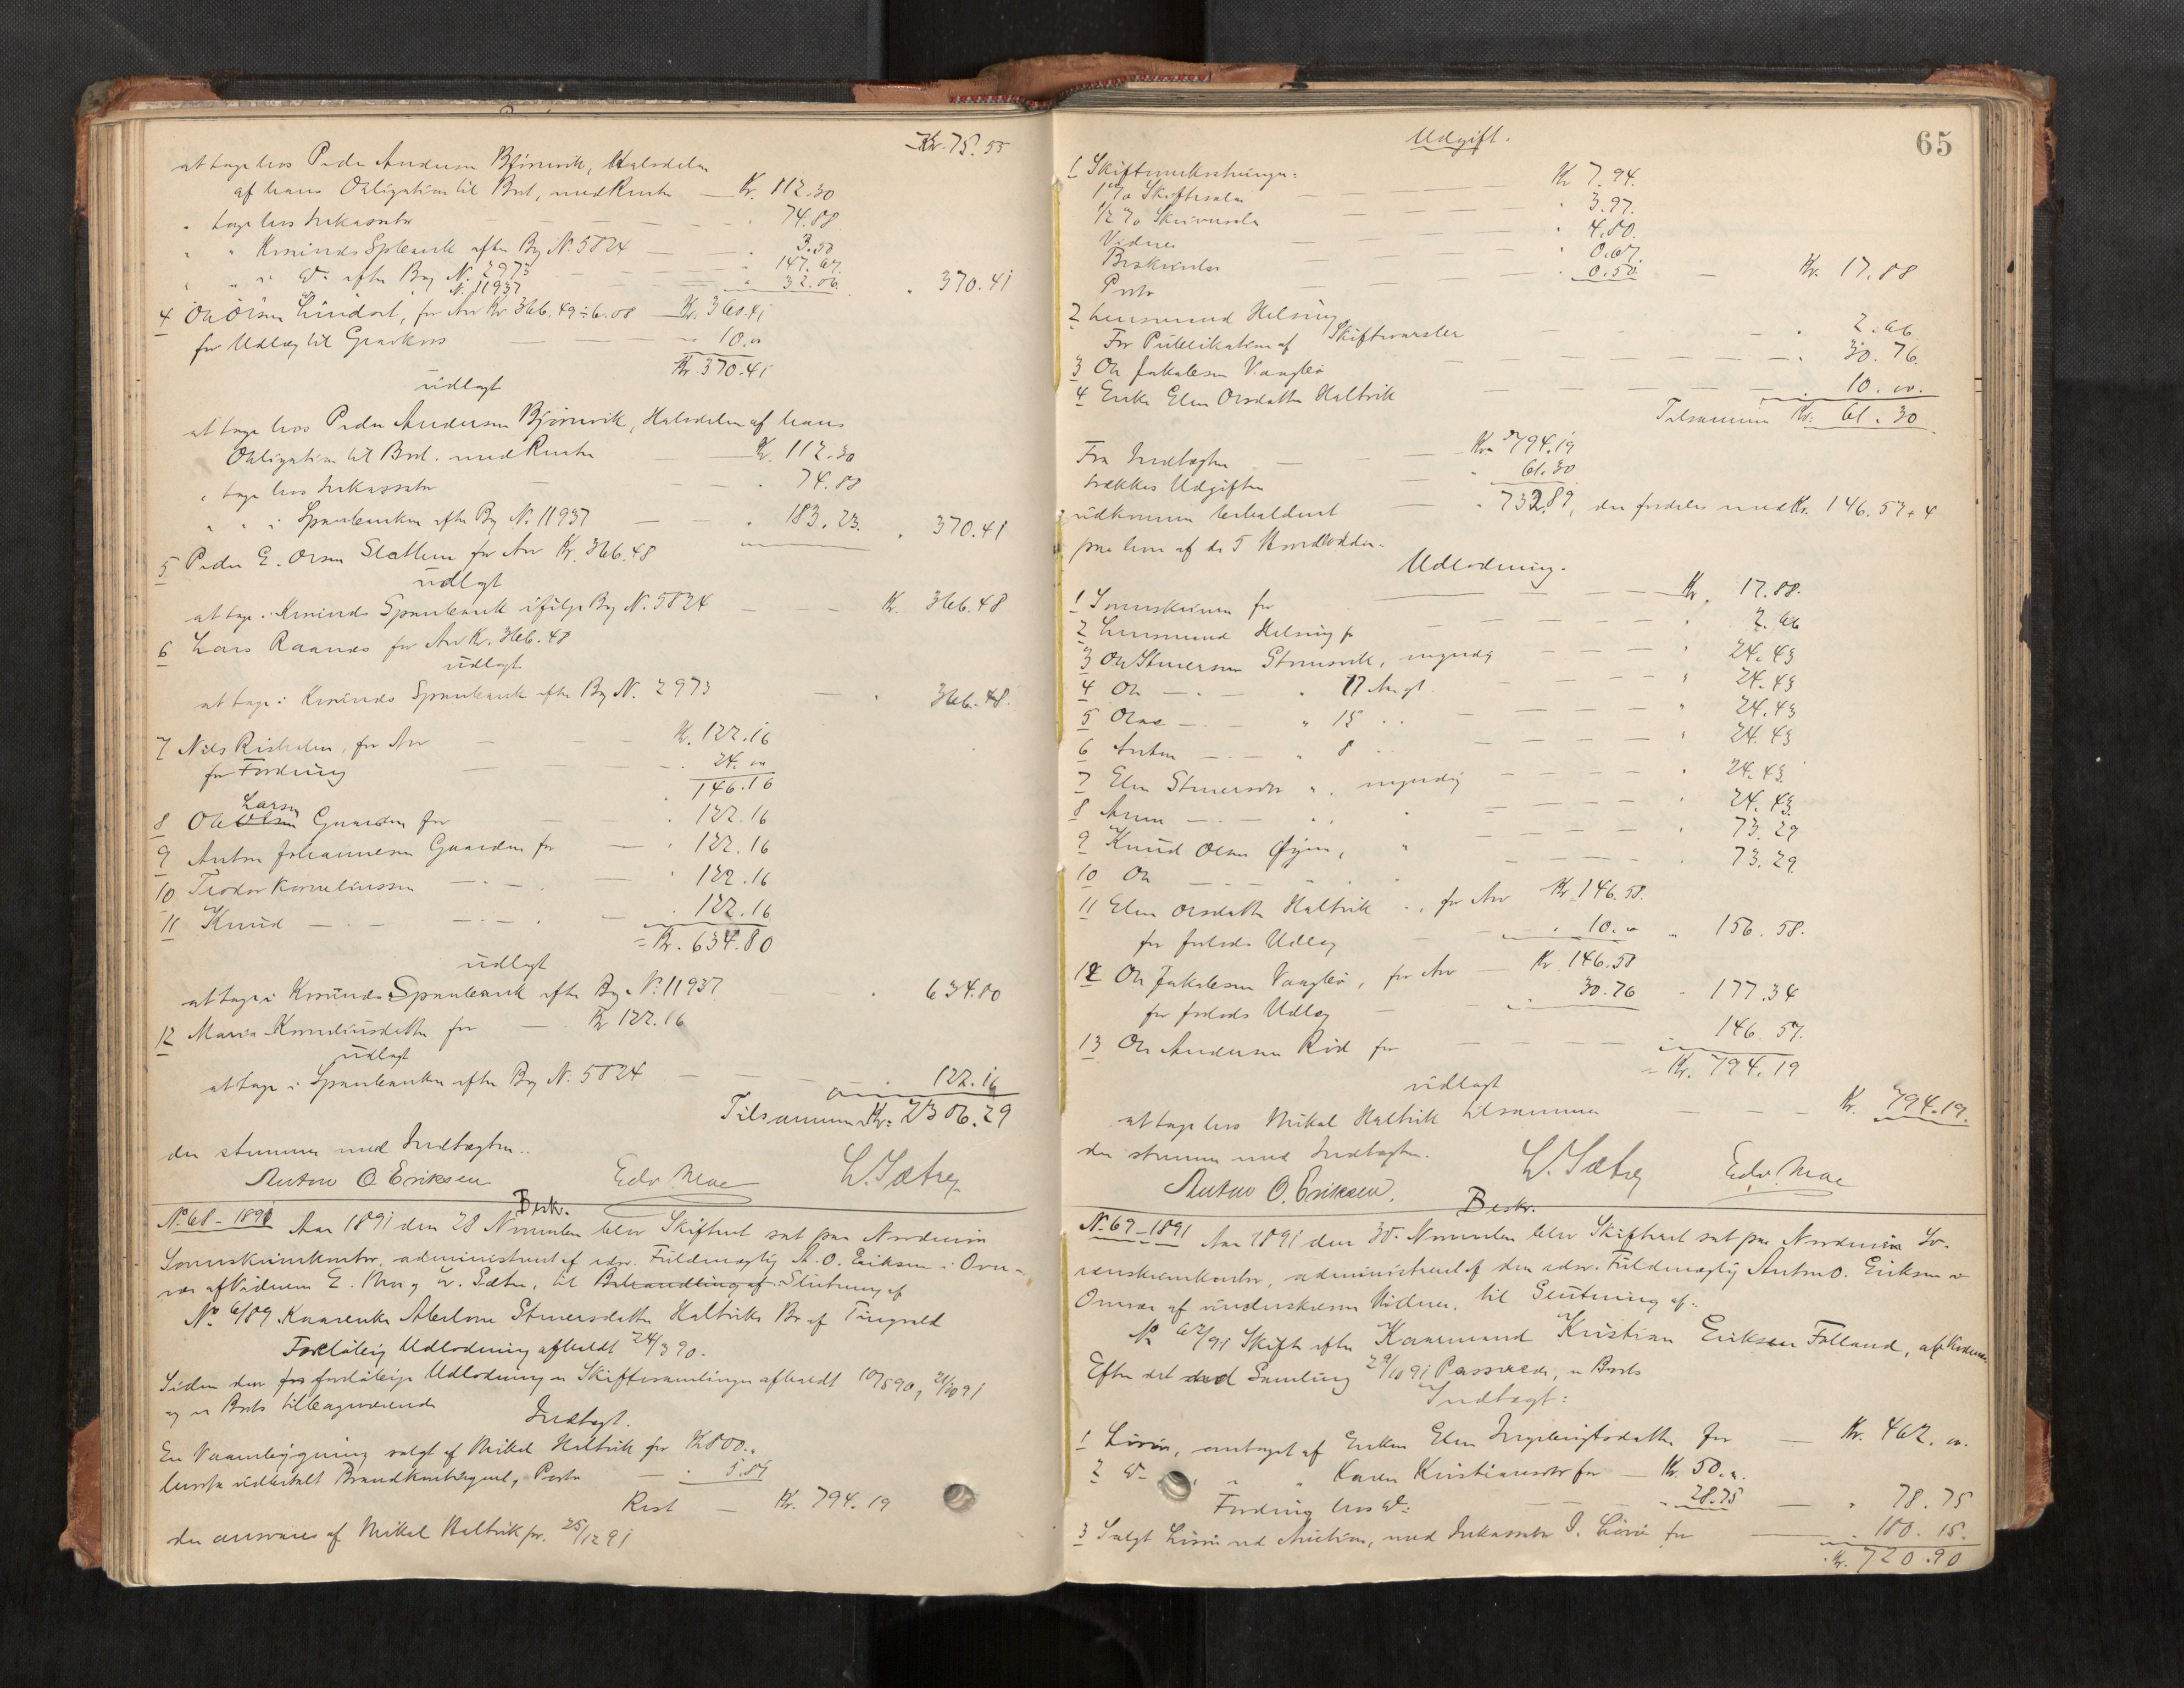 Kr. 75.55
at tage hos Peder Andersen Bjørnvik, Halvdelen
af hans Obligation til Boet, med Renter — Kr. 112.30
" tage hos Inkassator — " 74.88
" " Kr.sunds Spbank efter Bog N. 5824 — " 3.50
" " " do efter Bog N. 2973 — " 147.67
" N. 11937 — " 32.06 " 370.41
4 Ole Olsen Lindset, for Arv Kr 366.49 ÷ 6.08 — Kr. 360.41
for Udlæg til Gravkors — " 10.00
Kr. 370.41
udlagt
at tage hos Peder Andersen Bjørnvik, Halvdelen af hans
Obligation til Boet med Renter — Kr. 112.30
" tage hos Inkassator — " 74.88
" " i Sparebanken efter Bog N. 11937 — " 183.23. " 370.41
5 Peder E. Olsen for Arv Kr. 366.48
udlagt
at tage i Kr.sunds Sparebank ifølge Bog N. 5824 — Kr. 366.48
6 Lars Raanes for Arv Kr. 366.48
udlagt
at tage i Kr.sunds Sparebank efter Bog N. 2973 — " 366.48.
7 Nils for Arv — Kr. 122.16
for Fordring — " 24.00
" 146.16
8 Ole Larsen Gaarden for — " 122.16
9 Anton Johannesen Gaarden for — " 122.16
10 Teodor Korneliussen — " — " 122.16
11 Knud — " — — " — " 122.16
= Kr. 634.80
udlagt
at tage i Kr.sunds Sparebank efter Bog N. 11937 — " 634.80
12 Maria Korneliusdatter for — Kr 122.16
udlagt
at tage i Sparebanken efter Bog N. 5824 — " 122.16
Tilsammen Kr. 2306.29
der stemmer med Indtægten.
Anton O Eriksen Edv. Moe L. Sætre
Besk.
N. 68 – 1891 Aar 1891 den 28 November blev Skifteret sat paa Nordmøre
Sorenskriverkontor, administreret af edsv. Fuldmægtig A. O. Eriksen i Overvær
af Vidnerne E. Moe og L. Sætre, til Behandling af Slutning af
No 6/89 Kaarenke Abelone Steuersdatter Haltviks Bo af Tingvold
Foreløbig Udlodning afholdt 24/3 90.
Siden den foreløbige Udlodning er Skiftesamlinger afholdt 10/5 90, 21/10 91
og er Boets tilbageværende
Indtægt.
En Vaanbygning solgt af Mikal Haltvik for Kr 800.
herfra udbetalt Brandkontingent, Porto — " 5.81
Rest — Kr. 794.19
der ansvares af Mikal Haltvik pr. 25/12 91
65
Udgift.
1 Skifteomkostninger:
1 % Skiftesalær — Kr 7.94.
1/2 % Skriversalær — " 3.97.
Vidner — " 4.80.
Beskrivelse — " 0.67.
Porto — " 0.50. — Kr. 17.88
2 Lensmand Helsing
For Publikation af Skiftevarsler — " 2.66
3 Ole Jakobsen Vaagbø — " 30.76
4 Enke Elen Olsdatter Haltvik — " 10.00.
Tilsammen Kr. 61.30
Fra Indtægten — Kr. 794.19
trækkes Udgiften — " 61.30
udkommer beholdent — " 732.89, der fordeles med Kr. 146.57+4
paa hver af de 5 Hovedlodder.
Udlodning.
1 Sorenskriveren for — Kr. 17.88.
2 Lensmand Helsing for — " 2.66
3 Ole Steuersen, myndig — " 24.43
4 Ole — " — " 17 Aar gl. — " 24.43
5 Olas — " — " 15 " " — " 24.43
6 Anton — " — " 8 " — " 24.43
7 Elen Steuersdtr ", myndig — " 24.43
8 Anne — " — " " — " 24.43
9 Knud Olsen Øyen, " — " 73.29
10 Ole — — — " 73.29
11 Elen Olsdatter Haltvik ", for Arv Kr 146.58.
for forlods Udlæg — " 10.00 " 156.58.
12 Ole Jakobsen Vaagbø, for Arv — Kr 146.58
for forlods Udlæg — " 30.76 " 177.34
13 Ole Andersen Rød for — " 146.57.
= Kr. 794.19
udlagt
at tage hos Mikal Haltvik tilsammen — Kr. 794.19.
der stemmer med Indtægten.
Anton O. Eriksen. L. Sætre Edv. Moe
Beskr.
N. 69 – 1891 Aar 1891 den 30. November blev Skifteret sat paa Nordmøre So-
renskriverkontor, administreret af den edsv. Fuldmægtig Anton O. Eriksen i
Overvær af underskrevne Vidner, til Slutning af:
No 62/91 Skifte efter Kaarmand Kristian Eriksen Folland, af
Efter det Samling 29/10 91 er Boets
Indtægt:
1 Løsøre, antaget af Enken Elen Ingebrigtsdatter for — Kr. 462.00.
2 do " " Karen Kristiansdtr for — Kr. 50.00.
Fordring hos do: — " 28.75 — " 78.75
3 Solgt Løsøre ved Auktion, med Inkassator for — " 180.15.
Kr. 720.90